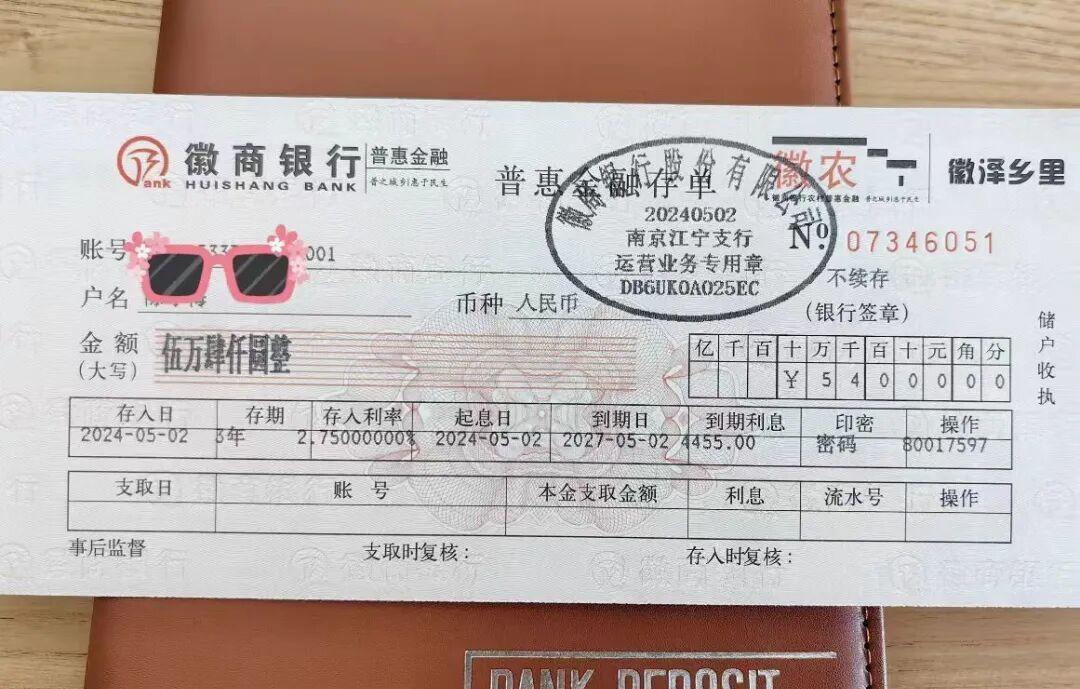 徽商银行 普惠金融
HUISHANG BANK 普之城乡惠于民生
徽农 徽泽乡里
普惠金融存单
徽商银行股份有限公司
20240502
南京江宁支行
运营业务专用章
DB6UK0A025EC
№: 07346051
账号 001
不续存
户名
币种 人民币
(银行签章)
金额
(大写)
伍万肆仟圆整
亿 千 百 十 万 千 百 十 元 角 分
¥ 5 4 0 0 0 0 0
储户收执
存入日 存期 存入利率 起息日 到期日 到期利息 印密 操作
2024-05-02 3年 2.75000000% 2024-05-02 2027-05-02 4455.00 密码 80017597
支取日 账号 本金支取金额 利息 流水号 操作
事后监督 支取时复核: 存入时复核:
BANK DEPOSIT